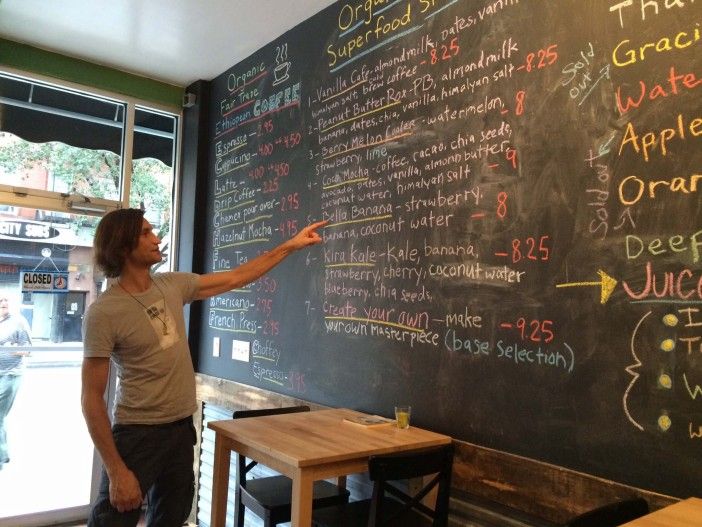 CITY SUBS
CLOSED
Organic
Fair Trade
Ethiopian COFFEE
Espresso - 2.95
Cappucino - 4.00 4.50
Latte - 4.00 4.50
Drip Coffee - 2.25
Chemex pour over - 2.95
Hazelnut Mocha - 4.95
Fine Tea
Americano - 2.95
French Press - 2.95
Choffey
Espresso - 3.95
Organic
Superfood
1- Vanilla Cafe, almond milk, dates, vanilla
himalyan salt, brew coffee - 8.25
2- Peanut Butter Rox - PB, almondmilk
banana, dates, chia, vanilla, himalyan salt - 8.25
3- Berry Melon Cooler - watermelon,
strawberry, lime - 8
4- Coco Mocha - coffee, cacao, chia seeds,
avocado, dates, vanilla, almond butter, - 9
coconut water, himalyan salt
5- Bella Banana - strawberry,
banana, coconut water - 8
6- Kira Kale - Kale, banana, - 8.25
strawberry, cherry, coconut water
blueberry, chia seeds,
7- Create your own - make - 9.25
your own masterpiece (base selection)
Sold out
Sold out
Gracie
Water
Apple
Oran
Deep
JUICE